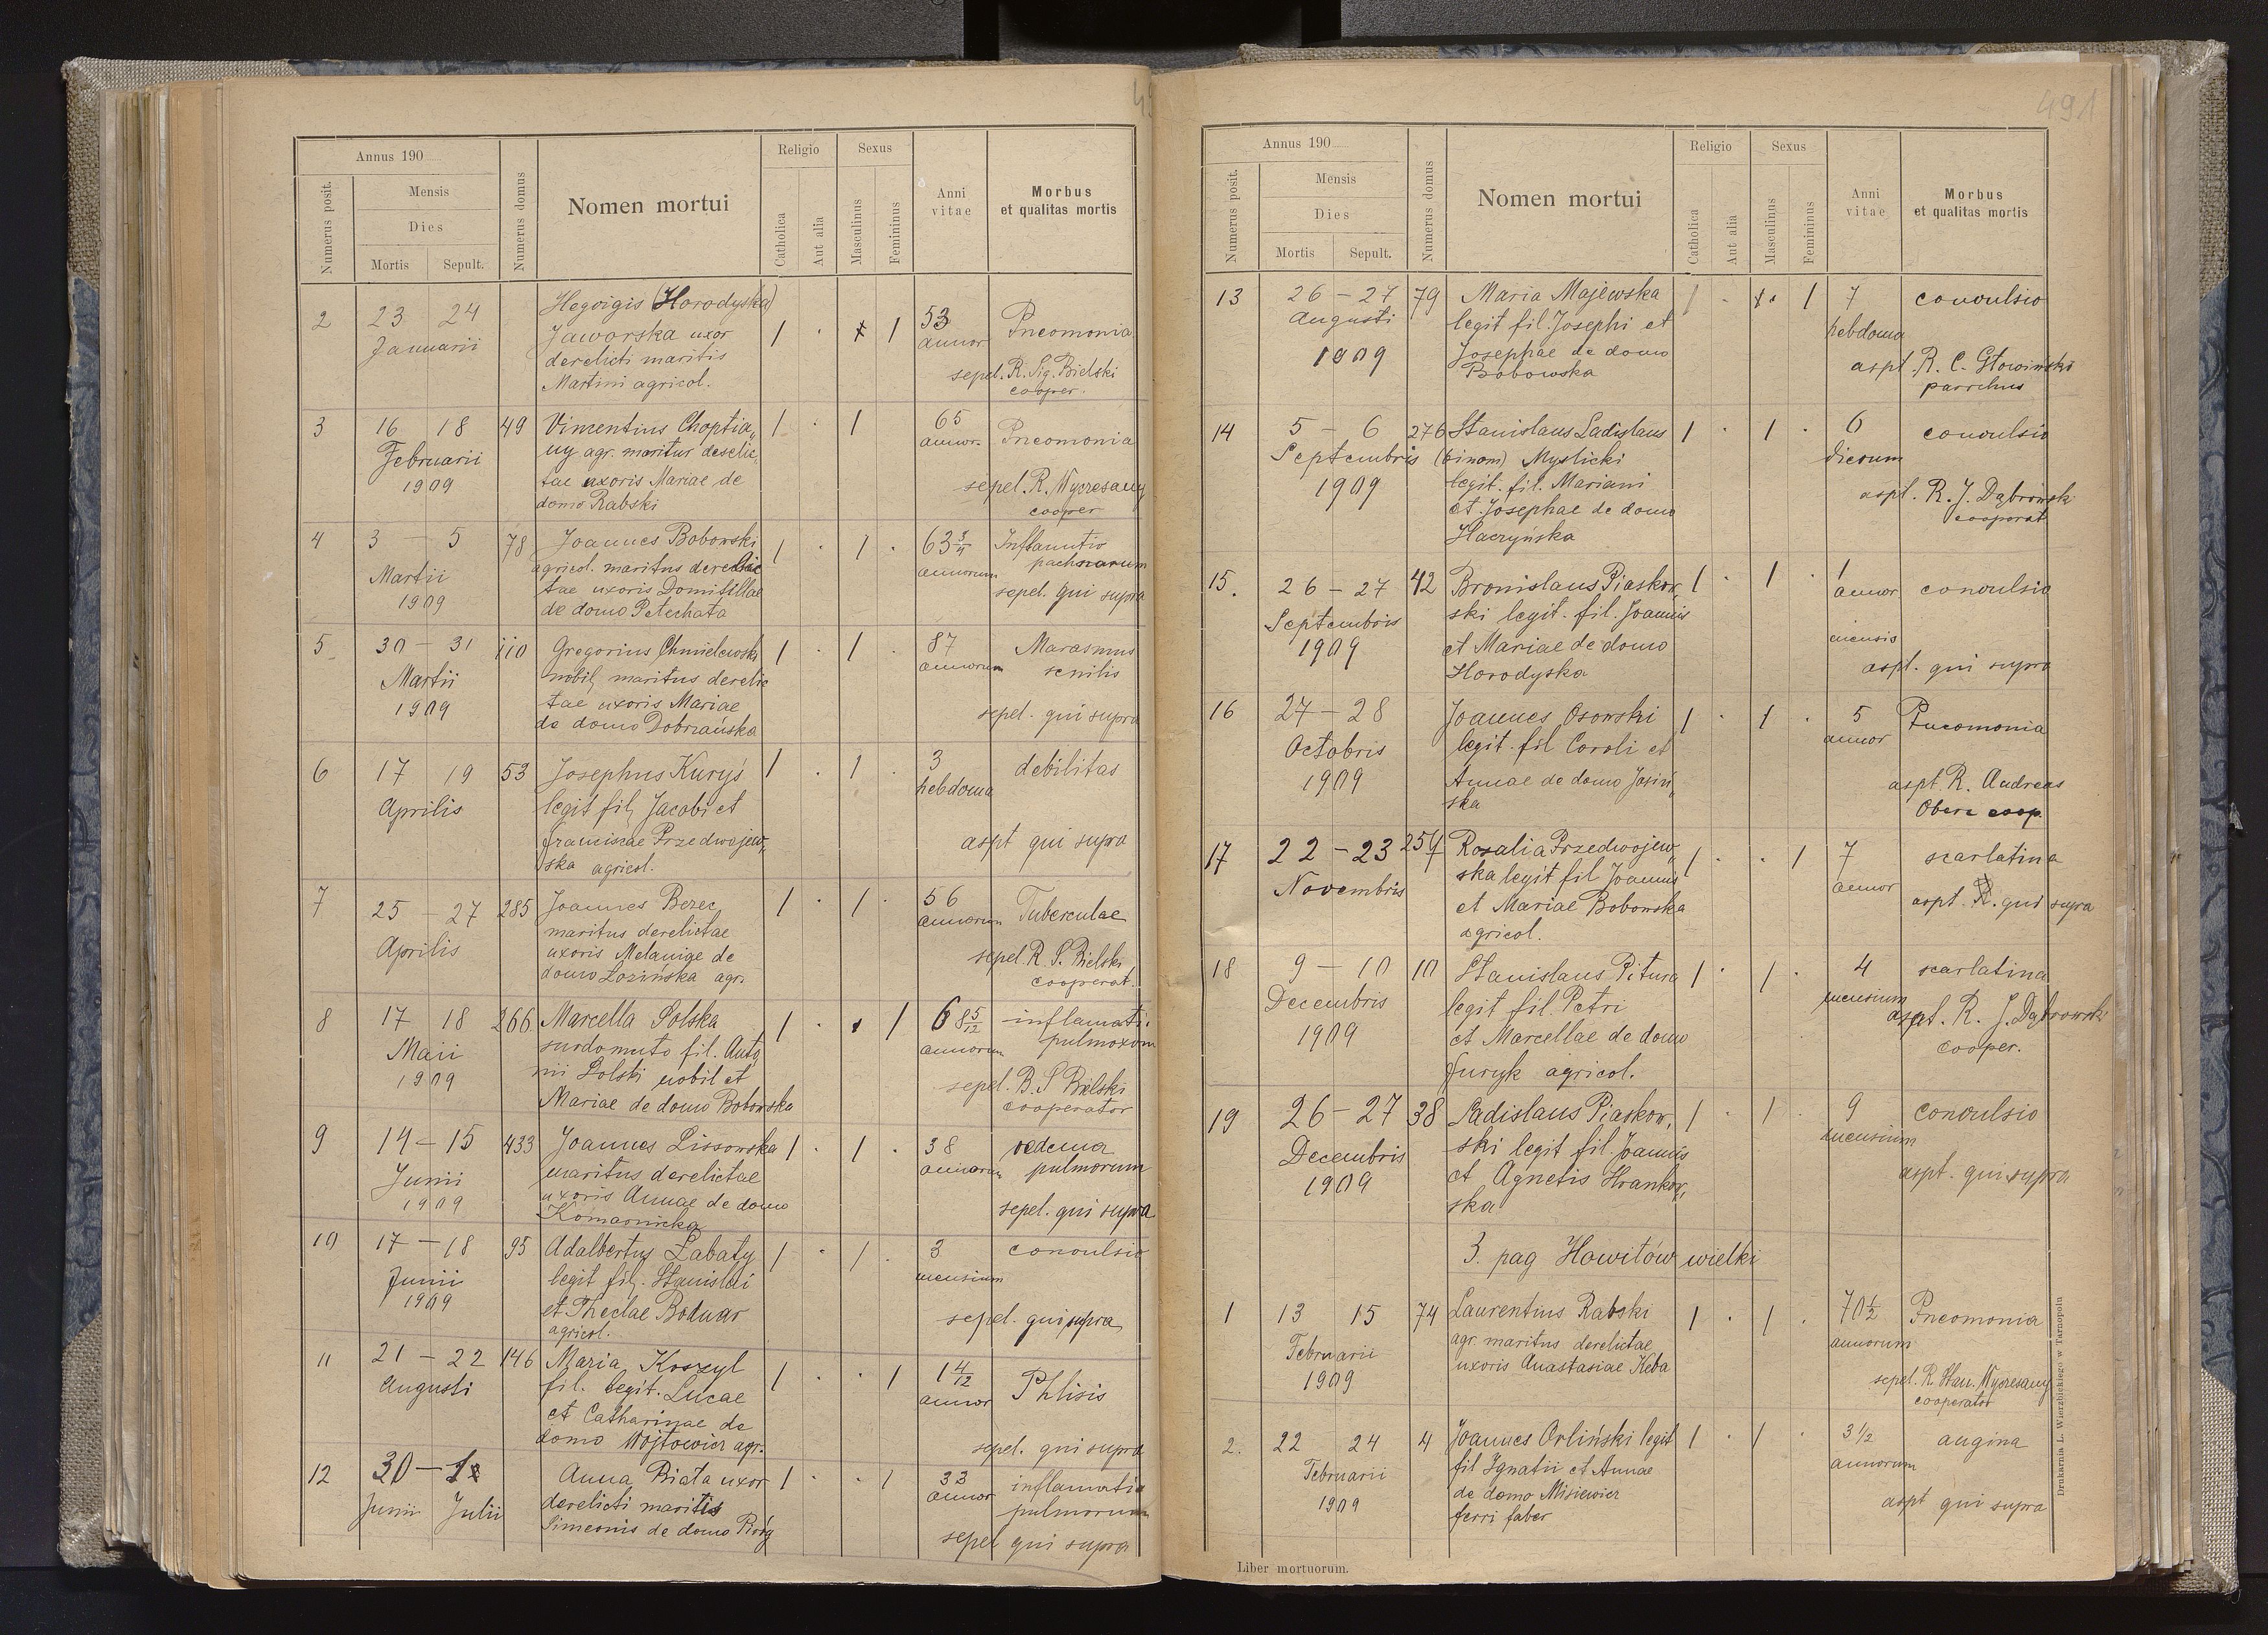 Annus 190
Numerus posit.
Mensis
Dies
Mortis
Sepult.
Numerus domus
Nomen mortui
Religio
Catholica
Aut alia
Sexus
Masculinus
Femininus
Anni
vitae
Morbus
et qualitas mortis
2
23 24
Januarii
(Horodyska)
Jaworska uxor
derelicti maritis
Martini agricol.
1 . 1
53
annor
Pneomonia
sepel. R. Sig. Bielski
cooper.
3
16 18
Februarii
1909
49
Vincentius Choptia„
ny agr. maritus derelic„
tae uxoris Mariae de
domo Rabski
1 . 1
65
annor.
Pneomonia
sepel. R. Wyczesany
cooper
4
3 – 5
Martii
1909
78
Joannes Bobowski
agricol. maritus derelic
tae uxoris Domitillae
de domo Petechata
1 . 1 .
63 3/4
annorum
Inflamatio
sepel. qui supra
5
30 – 31
Martii
1909
110
Gregorius Chmielewski
nobil, maritus derelic
tae uxoris Mariae
de domo Dobrzańska
1 . 1 .
87
annorum
Marasmus
senilis
sepel. qui supra
6
17 19
Aprilis
53
Josephus Kuryś
legit fil, Jacobi et
Franciscae Przedwojew„
ska agricol.
1 . 1 .
3
hebdoma
debilitas
aspt qui supra
7
25 – 27
Aprilis
285
Joannes Berec
maritus derelictae
uxoris Melanige de
domo Łozińska agr.
1 . 1 .
56
annorum
Tuberculae
sepel. R. S. Bielski
cooperat.
8
17 18
Maii
1909
266
Marcella Solska
surdomuto fil. Anto
nii Solski nobil et
Mariae de domo Bobowska
1 . . 1
68 5/12
annorum
inflamati.
pulmoxom
sepel. B. S Bielski
cooperator
9
14 – 15
Junii
1909
433
Joannes Lissowska
maritus derelictae
uxoris Annae de domo
Komarnicka
1 . 1 .
38
annorum
oedema
pulmorum
sepel. qui supra
10
17 – 18
Junii
1909
95
Adalbertus Łabaty
legit fil,. Stanislai
et Theclae Bodnar
agricol.
1 . 1 .
3
mensium
convulsio
sepel. qui supra
11
21 – 22
Augusti
146
Maria Koszyl
fil. legit. Lucae
et Catharinae de
domo Wojtowicz agr.
1 . . 1
1 4/12
annor
Phlisis
sepel. qui supra
12
30 – 1
Junii Julii
Anna Biała uxor
derelicti maritis
Simeonis de domo Piróg
1 . . 1
33
annor
inflamatio
pulmorum
sepel qui supra
491
Annus 190
Numerus posit.
Mensis
Dies
Mortis
Sepult.
Numerus domus
Nomen mortui
Religio
Catholica
Aut alia
Sexus
Masculinus
Femininus
Anni
vitae
Morbus
et qualitas mortis
13
26 – 27
Augusti
1909
79
Maria Majewska
legit fil. Josephi et
Josephae de domo
Bobowska
1 . 1
7
hebdoma
convulsio
aspt. R. C. Głowiński
parrchus
14
5 – 6
Septembris
1909
276
Stanislaus Ladislaus
(binom) Myslicki
legit. fil. Mariani
et Josephae de domo
Haczyńska
1 . 1 .
6
dierum
convulsio
aspt. R. J. Dąbrowski
cooperat
15.
26 – 27
Septembris
1909
42
Bronislaus Piaskow„
ski legit. fil. Joannis
et Mariae de domo
Horodyska
1 . 1 .
1
annor
mensis
convulsio
aspt. qui supra
16
27 – 28
Octobris
1909
Joannes Osowski
legit. fil Caroli et
Annae de domo Jasiń„
ska
1 . 1 .
5
annor
Pneomonia
aspt R. Andreas
Oberc coop.
17
22 – 23
Novembris
257
Rosalia Przedwojew„
ska legit fil Joannis
et Mariae Bobowska
agricol.
1 . . 1
7
annor
scarlatina
aspt. R. qui supra
18
9 – 10
Decembris
1909
10
Stanislaus Pitura
legit fil. Petri
et Marcellae de domo
Juryk agricol.
1 . 1 .
4
mensium
scarlatina
aspt. R. J. Dąbrowski
cooper.
19
26 – 27
Decembris
1909
38
Ladislaus Piaskow„
ski legit fil. Joannis
et Agnetis Hrankow„
ska
1 . 1 .
9
mensium
convulsio
aspt. qui supra
3. pag Howitów wielki
1
13 15
Februarii
1909
74
Laurentius Rabski
agr. maritus derelictae
uxoris Anastasiae Keba
1 . 1 .
70 1/2
annorum
Pneomonia
sepel. R. Stan. Wyczesany
cooperator
2.
22 24
Februarii
1909
4
Joannes Orliński legit
fil Ignatii et Annae
de domo Misiewicz
ferri faber
1 . 1 .
3 1/2
annorum
angina
aspt qui supra
Liber mortuorum.
Drukarnia L. Wierzbickiego w Tarnopolu